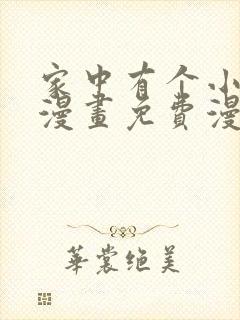 家中有个小
漫畫免費漫
華裳绝美